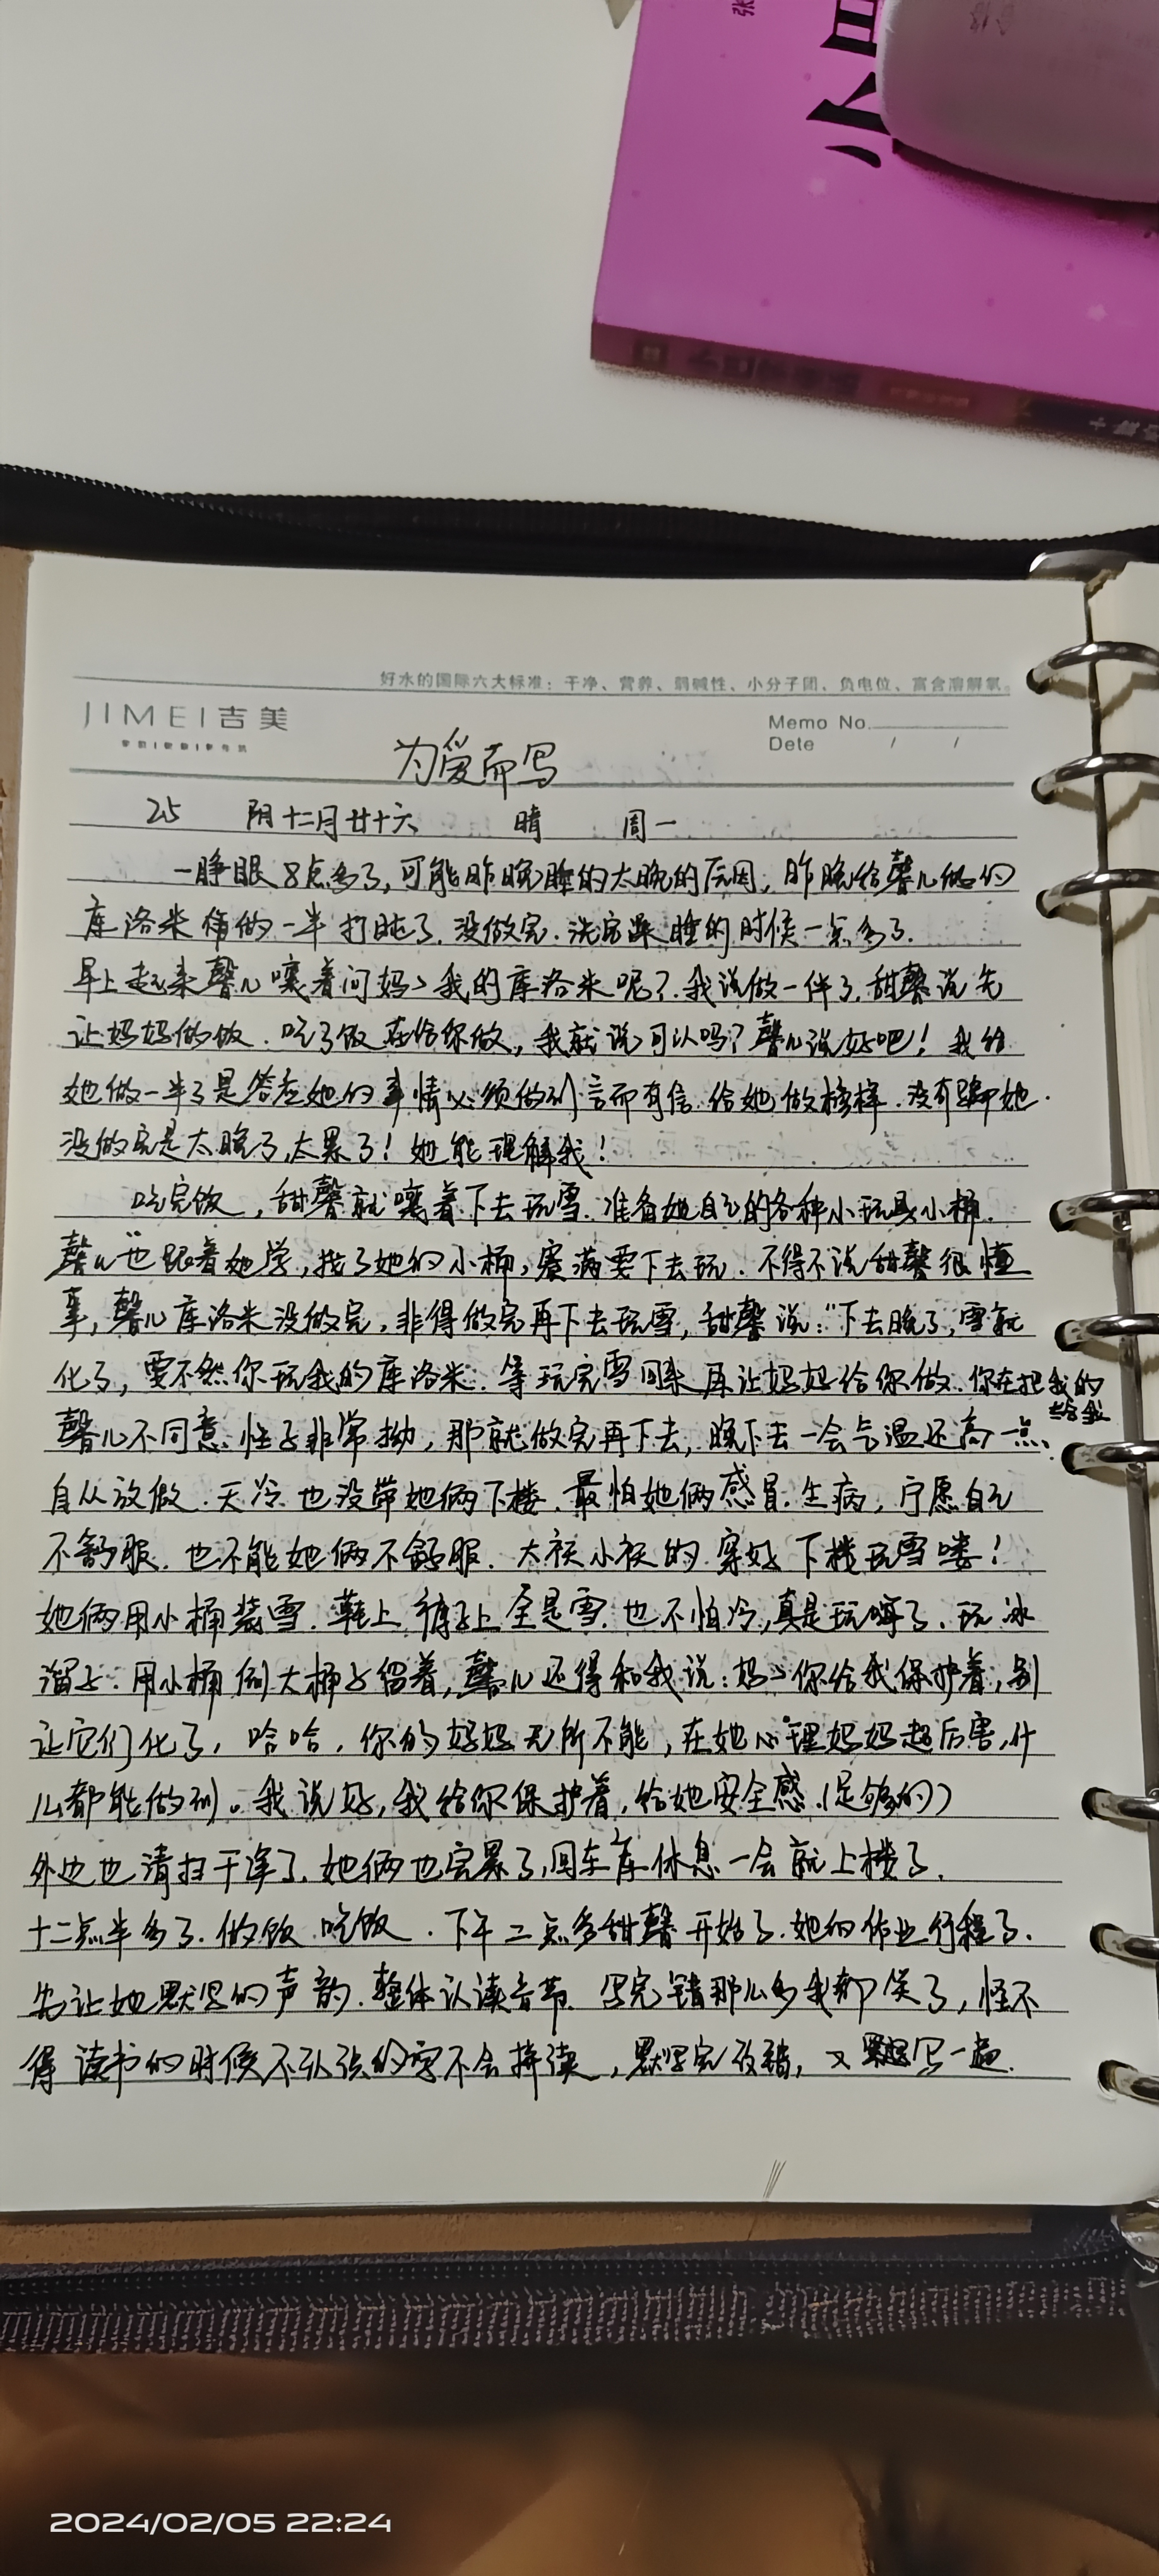 张
小
好水的国际六大标准：干净、营养、弱碱性、小分子团、负电位、富含溶解氧。
JIMEI吉美
Memo No.
Dete / /
为爱而写
25 阴十二月廿十六 晴 周一
一睁眼8点多了,可能昨晚睡的太晚的原因,昨晚给馨儿做的
库洛米做的一半打盹了.没做完.洗完澡睡的时候一点多了.
早上起来馨儿嚷着问妈妈我的库洛米呢?.我说做一伴了,甜馨说先
让妈妈做饭.吃了饭在给你做,我就说可以吗?馨儿说好吧!我给
她做一半了是答应她的事情必须做到言而有信.给她做榜样.没有骗她.
没做完是太晚了,太累了!她能理解我!
吃完饭,甜馨就嚷着下去玩雪.准备她自己的各种小玩具小桶.
馨儿也跟着她学,找了她的小桶,塞满要下去玩.不得不说甜馨很懂
事,馨儿库洛米没做完,非得做完再下去玩雪,甜馨说:"下去晚了,雪就
化了,要不然你玩我的库洛米.等玩完雪回来再让妈妈给你做.你在把我的
给我
馨儿不同意.性子非常拗,那就做完再下去,晚下去一会气温还高一点.
自从放假.天冷也没带她俩下楼.最怕她俩感冒.生病,宁愿自己
不舒服.也不能她俩不舒服.大袄小袄的穿好下楼玩雪喽!
她俩用小桶装雪.鞋上裤子上全是雪.也不怕冷,真是玩嗨了.玩冰
溜子.用小桶倒大桶子留着,馨儿还得和我说:妈妈你给我保护着,别
让它们化了,哈哈,你的妈妈无所不能,在她心理妈妈超厉害,什
么都能做到。我说好,我给你保护着,给她安全感.(足够的)
外边也清扫干净了.她俩也完累了,回车库休息一会就上楼了.
十二点半多了.做饭吃饭.下午二点多甜馨开始了.她的作业行程了.
先让她默写的声韵.整体认读音节.写完错那么多我都笑了,怪不
得读书的时候不认识的字不会拼读,默写完改错,又默写一遍.
2024/02/05 22:24